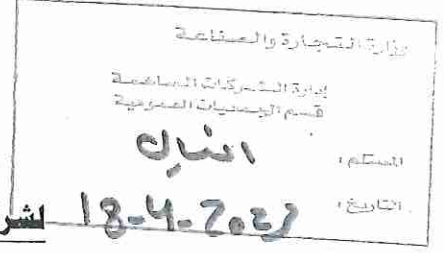 وزارة التجارة والصناعة
إدارة الشركات المساهمة
قسم الجمعيات العمومية
المستلم :
التاريخ : 18-4-2023
لشر